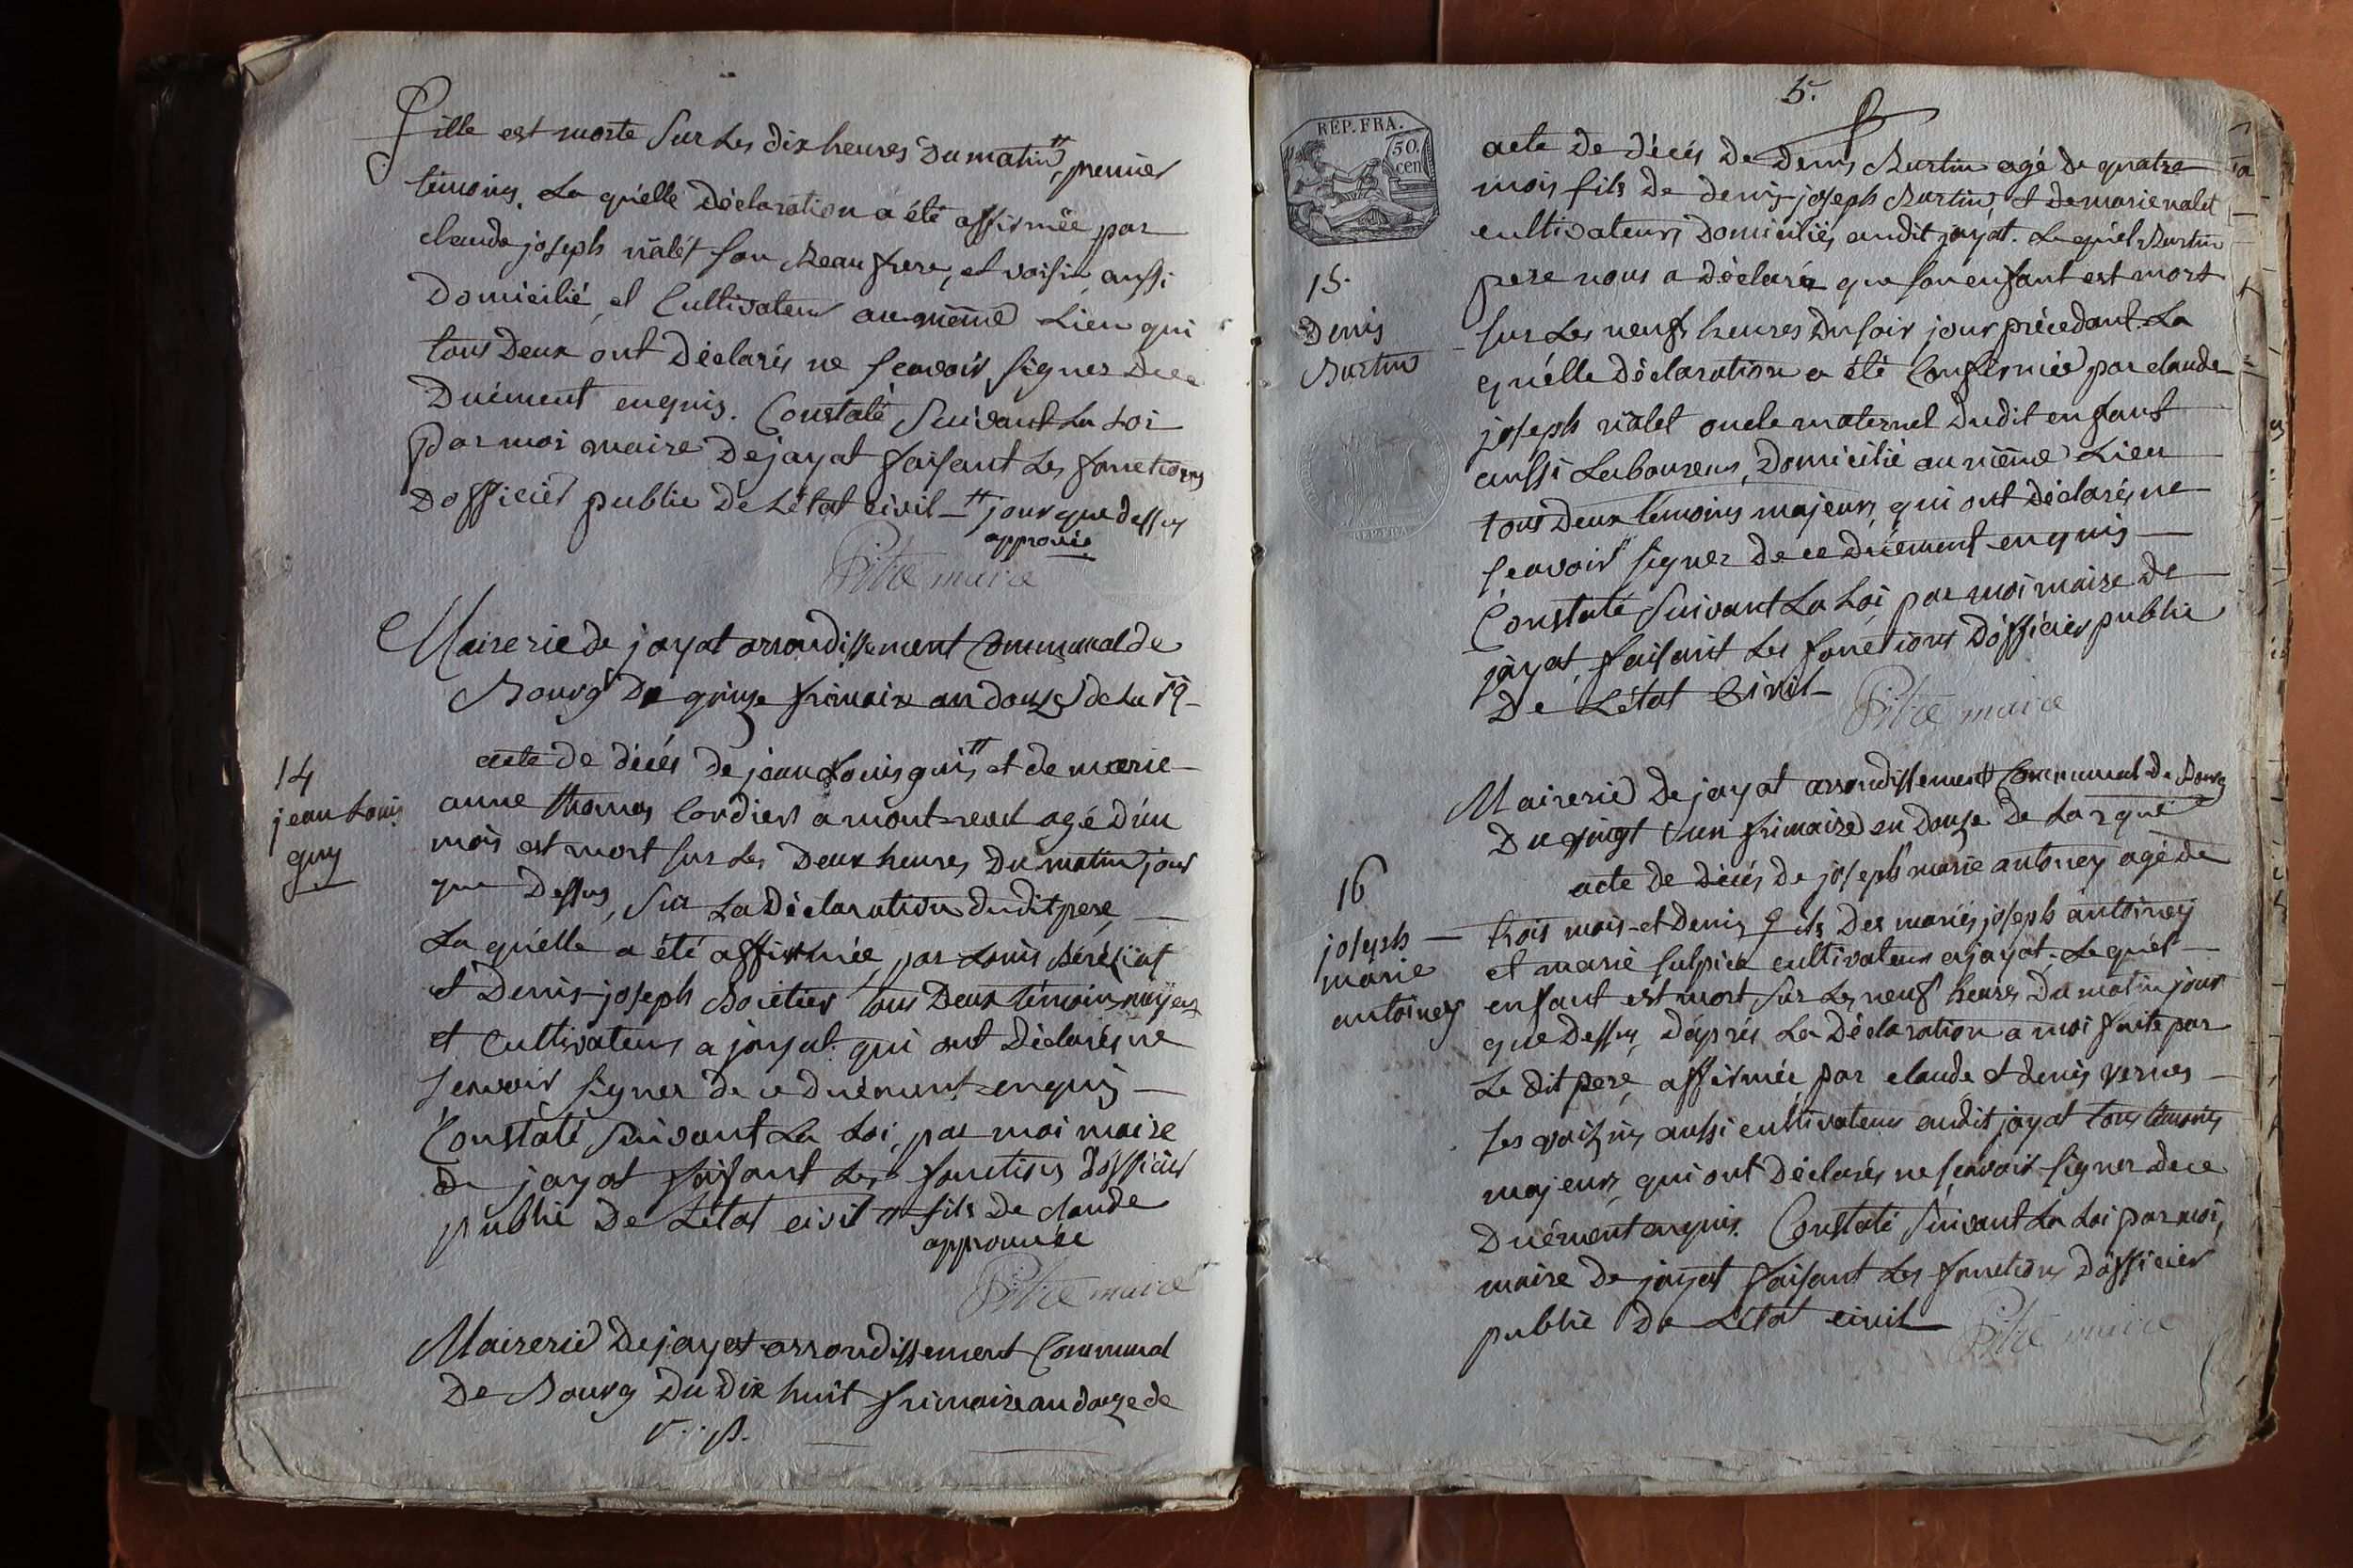 fille est morte sur les dix heures du matin, " premier
témoins. La qu'elle déclaration a été affirmée par
claude joseph nalet son Beau frere, et voisin aussi
domicilié, et Cultivateur au même Lieu qui
tous deux ont déclarés ne sçavoir signer de ce
duëment enquis. Constaté suivant la Loi
par moi maire de jayat faisant les fonctions
d'officier public de L'état civil - " jour que dessus
approuvée
Pitre maire
Mairerie de jayat arrondissement Communal de
Bourg Du quinze frimaire an douze de la
14
jean Louis
guy
acte de décès de jean Louis gui " et de marie
anne thomas Cordier a mont agé d'un
mois est mort sur les deux heures du matin jour
que dessus, sur La déclaration dudit pere,
La qu'elle a été affirmée par Louis
et Denis-joseph tous deux témoins majeurs
et Cultivateurs a jayat qui ont déclarés ne
sçavoir signer de ce duëment enquis
Constaté suivant La Loi, par moi maire
de jayat faisant les fonctions d'officier
public de L'état civil " fils de claude
approuvée
Pitre maire
Mairerie de jayat arrondissement Communal
de Bourg Du dix huit frimaire an douze de
5.
REP. FRA.
50.
cen
15.
Denis
Burtin
acte de décés de denis Burtin agé de quatre
mois fils de denis-joseph Burtin, et de marie nalet
cultivateurs domiciliés audit jayat. Lequel Burtin
pere nous a déclaré que son enfant est mort
sur les neufs heures du soir jour précedant. La
qu'elle déclaration a été Confirmée par claude
joseph nalet oncle maternel dudit enfant
aussi Laboureur, domicilié au même Lieu
tous deux témoins majeurs, qui ont déclarés ne
sçavoir signer de ce duëment enquis
Constaté suivant La Loi par moi maire de
jayat, faisant les fonctions d'officier public
de L'état Civil
Pitre maire
Mairerie de jayat arrondissement Communal de Bourg
Du vingt un frimaire an douze de La rque
16
joseph
marie
antoiney
acte de décés de joseph marie antoiney agé de
trois mois et demis fils des mariés joseph antoiney
et marie sulpice cultivateurs a jayat. Lequel
enfant est mort sur les neuf heures du matin jour
que dessus, d'après La déclaration a moi faite par
Le dit pere, affirmée par claude et denis vernes
ses voisins aussi cultivateurs audit jayat tous témoins
majeurs, qui ont déclarés ne sçavoir signer de ce
duëment enquis. Constaté suivant La Loi par moi,
maire de jayat faisant les fonctions d'officier
public de L'état civil
Pitre maire